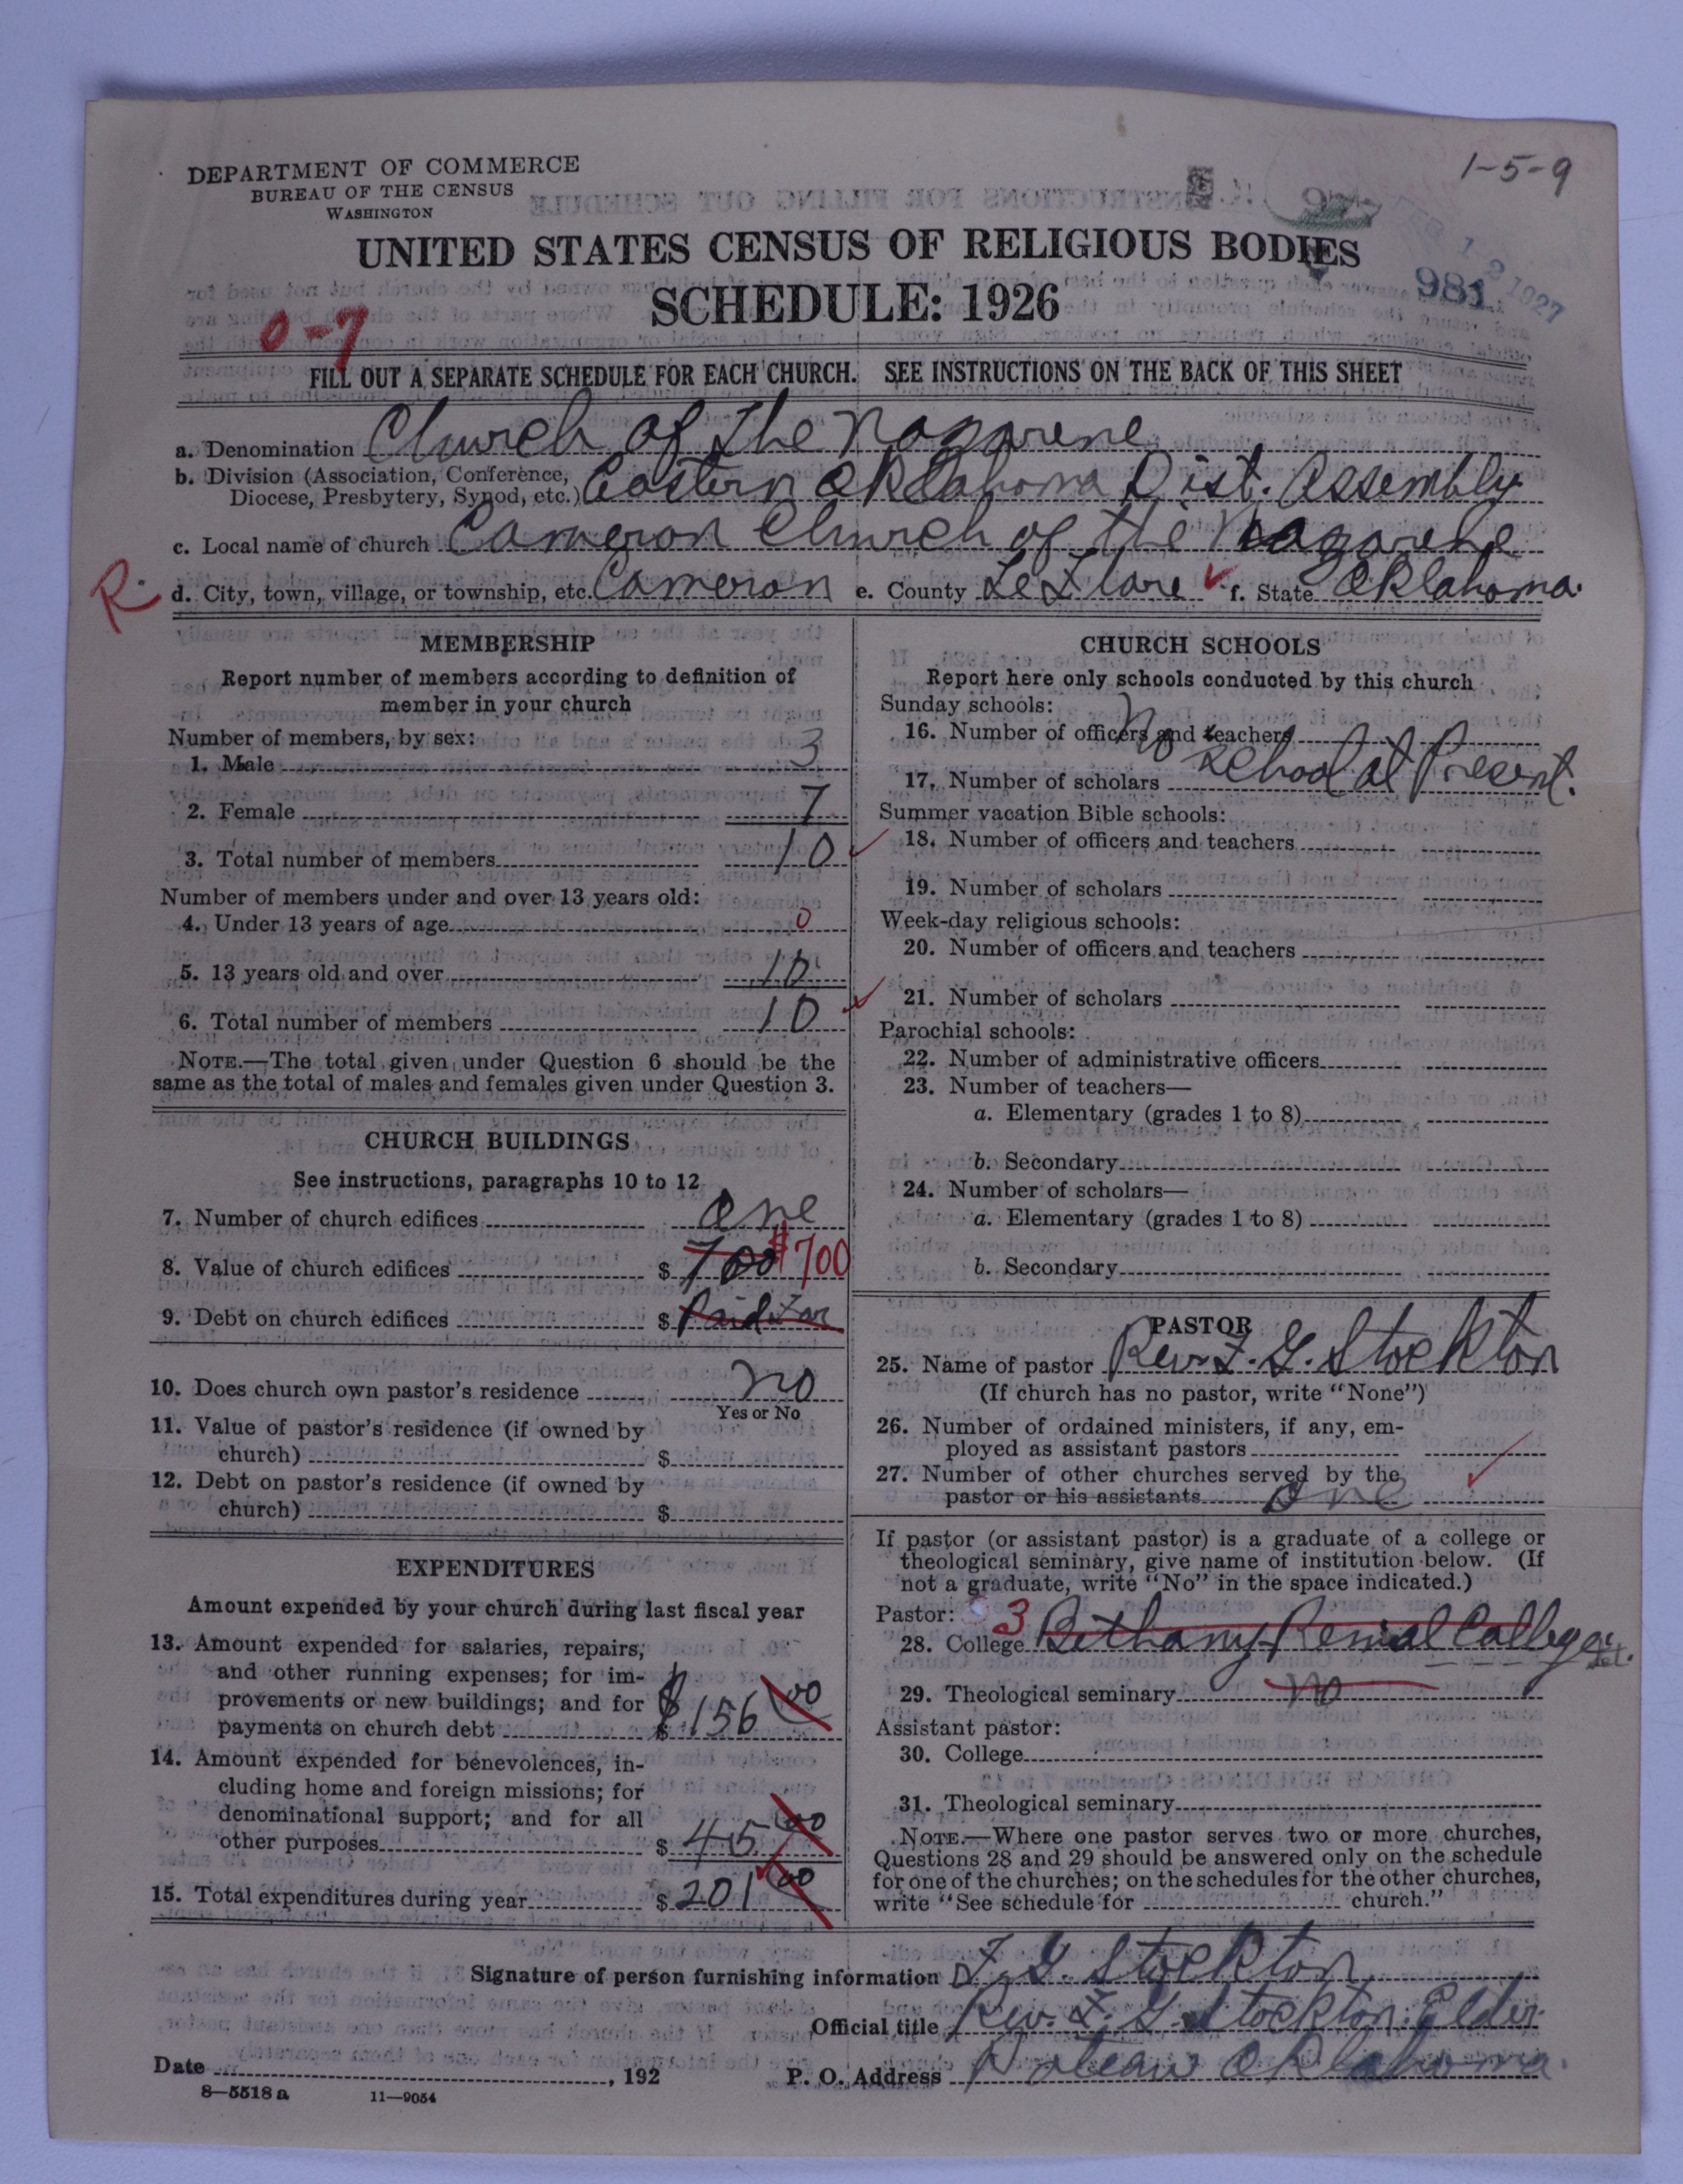 1-5-9
DEPARTMENT OF COMMERCE
BUREAU OF THE CENSUS
WASHINGTON
FEB 12 1927
981
UNITED STATES CENSUS OF RELIGIOUS BODIES
SCHEDULE: 1926
0-7
FILL OUT A SEPARATE SCHEDULE FOR EACH CHURCH. SEE INSTRUCTIONS ON THE BACK OF THIS SHEET
a. Denomination Church of the Nazarene
b. Division (Association, Conference,
Diocese, Presbytery, Synod, etc.) Eastern Oklahoma Dist. Assembly
c. Local name of church Cameron Church of the Nazarene
R. d. City, town, village, or township, etc. Cameron e. County LeFlore f. State Oklahoma.
MEMBERSHIP
Report number of members according to definition of
member in your church
Number of members, by sex:
1. Male 3
2. Female 7
3. Total number of members 10
Number of members under and over 13 years old:
4. Under 13 years of age 0
5. 13 years old and over 10
6. Total number of members 10
NOTE.—The total given under Question 6 should be the
same as the total of males and females given under Question 3.
CHURCH BUILDINGS
See instructions, paragraphs 10 to 12
7. Number of church edifices One
8. Value of church edifices $ 700 $700
9. Debt on church edifices $ Paid For
10. Does church own pastor's residence no
Yes or No
11. Value of pastor's residence (if owned by
church) $
12. Debt on pastor's residence (if owned by
church) $
EXPENDITURES
Amount expended by your church during last fiscal year
13. Amount expended for salaries, repairs,
and other running expenses; for im-
provements or new buildings; and for
payments on church debt $ $156 00
14. Amount expended for benevolences, in-
cluding home and foreign missions; for
denominational support; and for all
other purposes $ 45 00
15. Total expenditures during year $ 201 00
CHURCH SCHOOLS
Report here only schools conducted by this church
Sunday schools:
16. Number of officers and teachers No
17. Number of scholars School at Present.
Summer vacation Bible schools:
18. Number of officers and teachers
19. Number of scholars
Week-day religious schools:
20. Number of officers and teachers
21. Number of scholars
Parochial schools:
22. Number of administrative officers
23. Number of teachers—
a. Elementary (grades 1 to 8)
b. Secondary
24. Number of scholars—
a. Elementary (grades 1 to 8)
b. Secondary
PASTOR
25. Name of pastor Rev. F. G. Stockton
(If church has no pastor, write "None")
26. Number of ordained ministers, if any, em-
ployed as assistant pastors
27. Number of other churches served by the
pastor or his assistants One
If pastor (or assistant pastor) is a graduate of a college or
theological seminary, give name of institution below. (If
not a graduate, write "No" in the space indicated.)
Pastor: 3
28. College Bethany Penial College
29. Theological seminary No
Assistant pastor:
30. College
31. Theological seminary
NOTE.—Where one pastor serves two or more churches,
Questions 28 and 29 should be answered only on the schedule
for one of the churches; on the schedules for the other churches,
write "See schedule for church."
Signature of person furnishing information F. G. Stockton
Official title Rev. F. G. Stockton. Elder
Date , 192 P. O. Address Poteau Oklahoma.
8—5518 a 11—9054